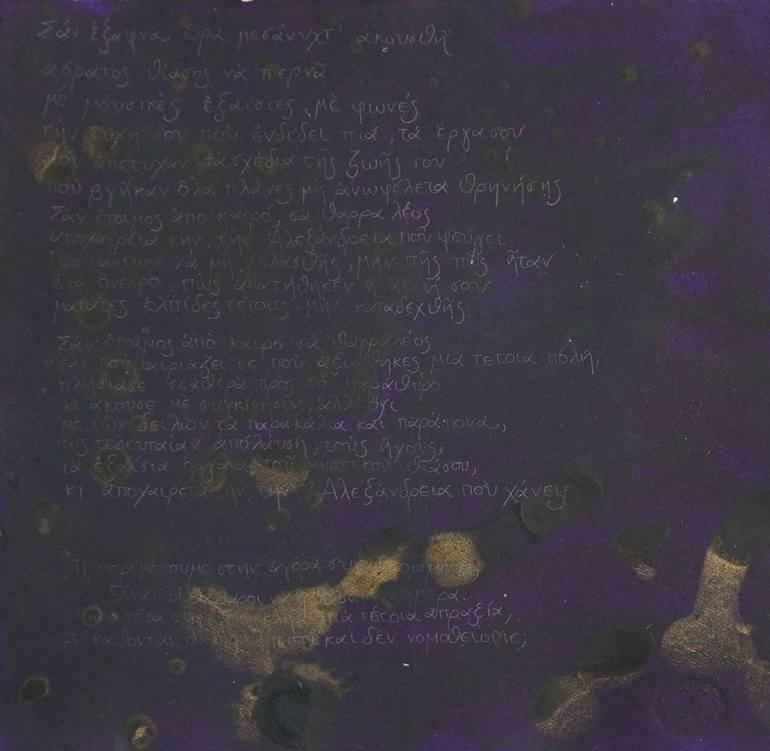 Σάν ἔξαφνα ὥρα μεσάνυχτ' ἀκουσθῆ
ἀόρατος θίασος νὰ περνᾶ
μὲ μουσικὲς ἐξαίσιες, μὲ φωνές
τὴν τύχη σου ποὺ ἐνδίδει πιά, τὰ ἔργα σου
ποὺ ἀπέτυχαν, τὰ σχέδια τῆς ζωῆς σου
ποὺ βγῆκαν ὅλα πλάνες μὴ ἀνωφέλετα θρηνήσῃς
Σὰν ἕτοιμος ἀπὸ καιρό, σὰ θαρραλέος
ἀποχαιρέτα την, τὴν Ἀλεξάνδρεια ποὺ φεύγει
νὰ μὴ γελασθῆς, μὴν πῆς πὼς ἦταν
ἕνα ὄνειρο, πὼς ἀπατήθηκεν ἡ ἀκοή σου
ματαιες ἐλπίδες τέτοιες μὴν καταδεχθῆς
Σὰν ἕτοιμος ἀπὸ καιρό σὰ θαρραλέος
σὰν ποὺ ταιριάζει σε ποὺ ἀξιώθηκες μια τετοια πόλη,
πλησίασε σταθερὰ πρὸς τὸ παράθυρο
κι ἄκουσε μὲ συγκίνησιν, ἀλλ' ὄχι
μὲ τῶν δειλῶν τὰ παρακάλια καὶ παράπονα,
ὡς τελευταίαν ἀπόλαυση, τοὺς ἤχους,
τὰ ἐξαίσια ὄργανα τοῦ μυστικοῦ θιάσου,
κι ἀποχαιρέτα την, τὴν Ἀλεξάνδρεια ποὺ χάνεις
Τί περιμένουμε στὴν ἀγορὰ
Εἶναι
μέσα στὴ μιὰ τέτοια ἀπραξία,
κάθονται οἱ καὶ δὲν νομοθετοῦνε;